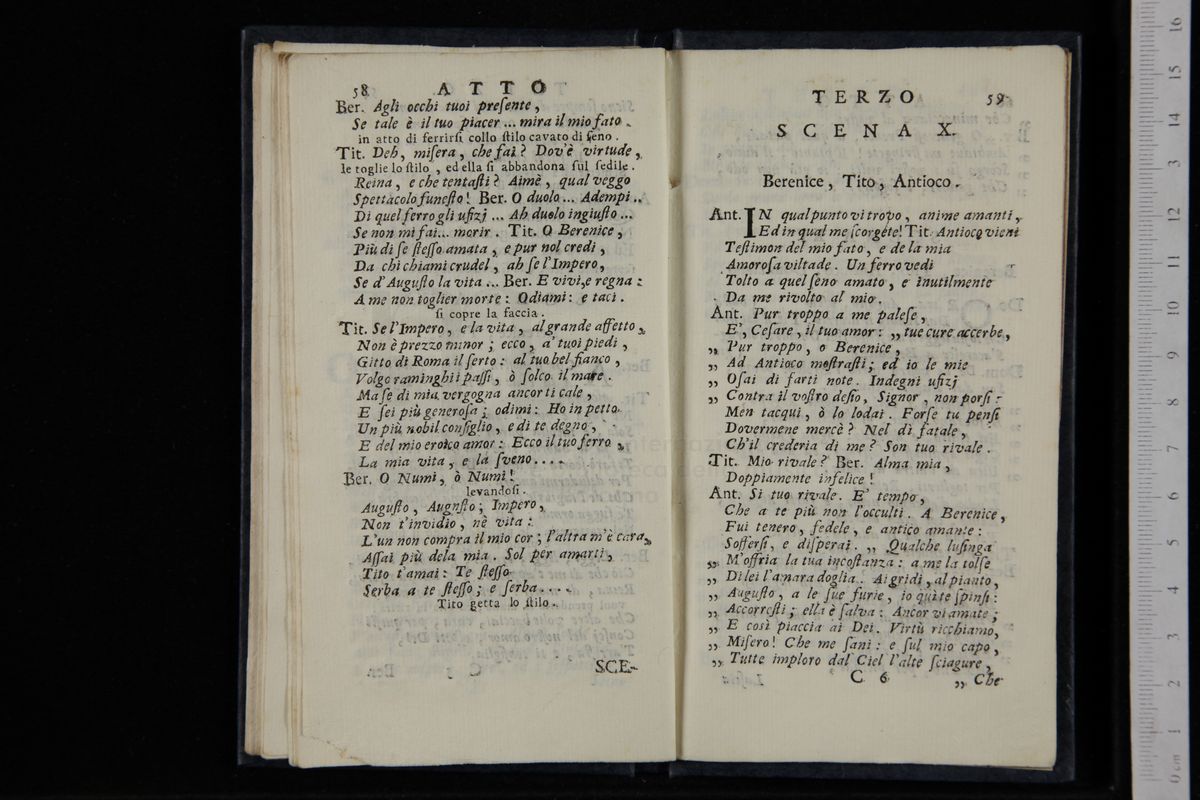 58 ATTO
Ber. Agli occhi tuoi preſente,
Se tale è il tuo piacer ... mira il mio fato.
in atto di ferrirſi collo ſtilo cavato di ſeno.
Tit. Deh, miſera, che fai? Dov'è virtude,
le toglie lo ſtilo, ed ella ſi abbandona ſul ſedile.
Reina, e che tentaſti? Aimè, qual veggo
Spettacolo funeſto! Ber. O duolo ... Adempi ..
Di quel ferro gli ufizj ... Ah duolo ingiuſto ...
Se non mi fai... morir. Tit. O Berenice,
Più di ſe ſteſſo amata, e pur nol credi,
Da chi chiami crudel, ah ſe l'Impero,
Se d'Auguſto la vita ... Ber. E vivi, e regna:
A me non toglier morte: Odiami: e taci.
ſi copre la faccia.
Tit. Se l'Impero, e la vita, al grande affetto,
Non è prezzo minor; ecco, a' tuoi piedi,
Gitto di Roma il ſerto: al tuo bel fianco,
Volgo raminghi i paſſi, ò ſolco il mare.
Ma ſe di mia vergogna ancor ti cale,
E ſei più generoſa; odimi: Ho in petto
Un più nobil conſiglio, e di te degno,
E del mio eroico amor: Ecco il tuo ferro,
La mia vita, e la ſveno....
Ber. O Numi, ò Numi!
levandoſi.
Auguſto, Auguſto; Impero,
Non t'invidio, nè vita:
L'un non compra il mio cor; l'altra m'è cara,
Aſſai più dela mia. Sol per amarti,
Tito t'amai: Te ſteſſo
Serba a te ſteſſo; e ſerba....
Tito getta lo ſtilo.
SCE-
TERZO 59
SCENA X.
Berenice, Tito, Antioco.
Ant. IN qual punto vi trovo, anime amanti,
Ed in qual me ſcorgete! Tit. Antioco vieni
Teſtimon del mio fato, e de la mia
Amoroſa viltade. Un ferro vedi
Tolto a quel ſeno amato, e inutilmente
Da me rivolto al mio.
Ant. Pur troppo a me paleſe,
E', Ceſare, il tuo amor: „ tue cure accerbe,
„ Pur troppo, o Berenice,
„ Ad Antioco moſtraſti; ed io le mie
„ Oſai di farti note. Indegni ufizj
„ Contra il voſtro deſio, Signor, non porſi:
Men tacqui, ò lo lodai. Forſe tu penſi
Dovermene mercè? Nel dì fatale,
Ch'il crederia di me? Son tuo rivale.
Tit. Mio rivale? Ber. Alma mia,
Doppiamente infelice!
Ant. Si tuo rivale. E' tempo,
Che a te più non l'occulti. A Berenice,
Fui tenero, fedele, e antico amante:
Sofferſi, e diſperai. „ Qualche luſinga
„ M'offria la tua incoſtanza: a me la tolſe
„ Di lei l'amara doglia. Ai gridi, al pianto,
„ Auguſto, a le ſue furie, io quì te ſpinſi:
„ Accorreſti; ella è ſalva: Ancor vi amate;
„ E così piaccia ai Dei. Virtù ricchiamo,
„ Miſero! Che me ſani: e ſul mio capo,
„ Tutte imploro dal Ciel l'alte ſciagure,
C 6 „ Che